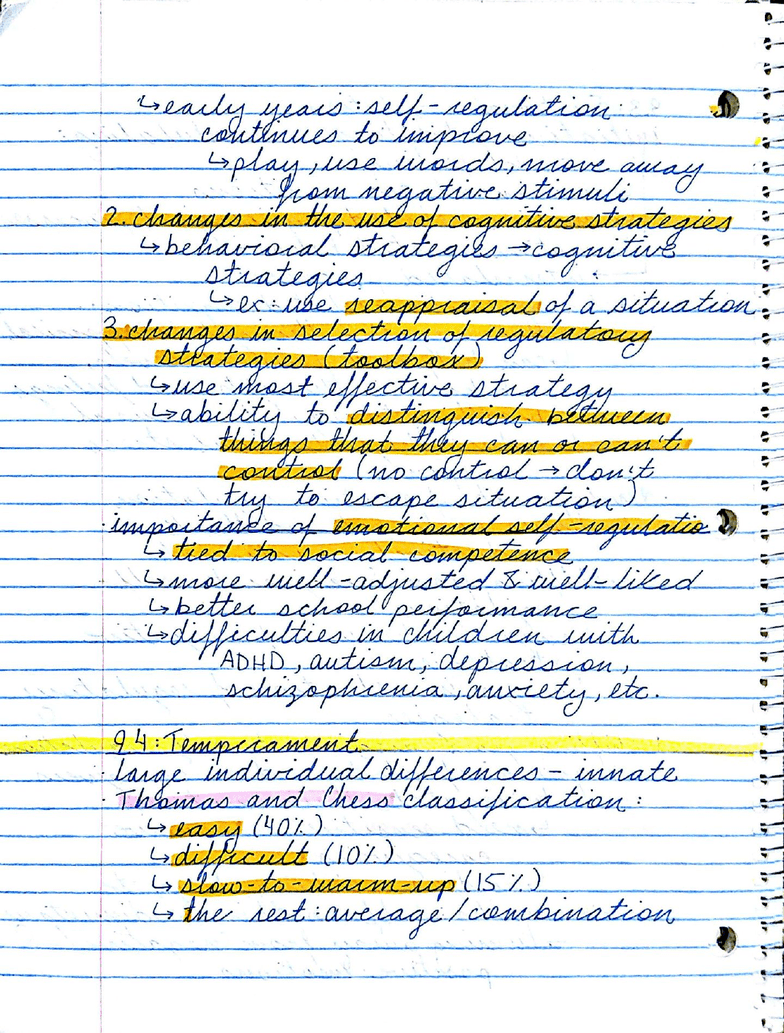 ↳early years: self-regulation
continues to improve
↳play, use words, move away
from negative stimuli
2. changes in the use of cognitive strategies
↳behavioral strategies →cognitive
strategies
↳ex: use reappraisal of a situation
3. changes in selection of regulatory
strategies (toolbox)
↳use most effective strategy
↳ability to distinguish between
things that they can or can't
control (no control → don't
try to escape situation)
· importance of emotional self-regulatio
↳ tied to social competence
↳more well-adjusted & well-liked
↳better school performance
↳difficulties in children with
ADHD, autism, depression,
schizophrenia, anxiety, etc.
94: Temperament
· large individual differences – innate
· Thomas and Chess classification:
↳ easy (40%)
↳ difficult (10%)
↳ slow-to-warm-up (15%)
↳ the rest: average/combination